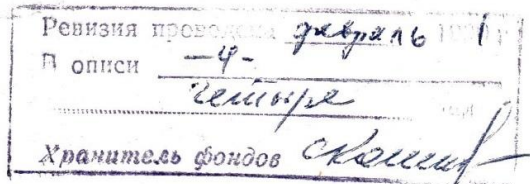 Ревизия проведена февраль
В описи —4—
четыре
Хранитель фондов